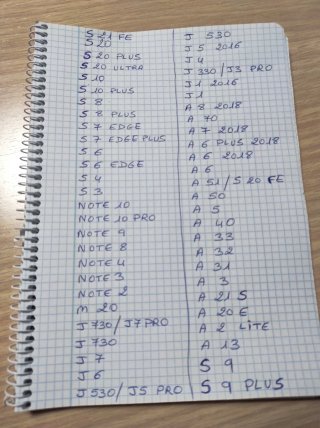 S 21 FE
S 20
S 20 PLUS
S 20 ULTRA
S 10
S 10 PLUS
S 8
S 8 PLUS
S 7 EDGE
S 7 EDGE PLUS
S 6
S 6 EDGE
S 4
S 3
NOTE 10
NOTE 10 PRO
NOTE 9
NOTE 8
NOTE 4
NOTE 3
NOTE 2
M 20
J 730/J7 PRO
J 730
J 7
J 6
J 530/J5 PRO
J 530
J 5 2016
J 4
J 330/J3 PRO
J 1 2016
J 1
A 8 2018
A 70
A 7 2018
A 6 PLUS 2018
A 6 2018
A 6
A 51/S 20 FE
A 50
A 5
A 40
A 33
A 32
A 31
A 3
A 21 S
A 20 E
A 2 LITE
A 13
S 9
S 9 PLUS